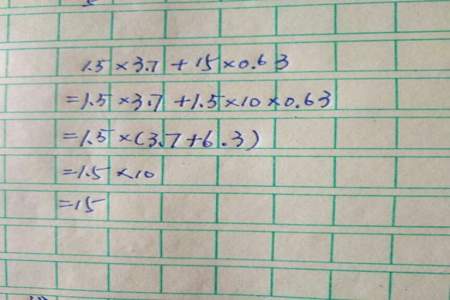 1.5×3.7+15×0.63
=1.5×3.7+1.5×10×0.63
=1.5×(3.7+6.3)
=1.5×10
=15